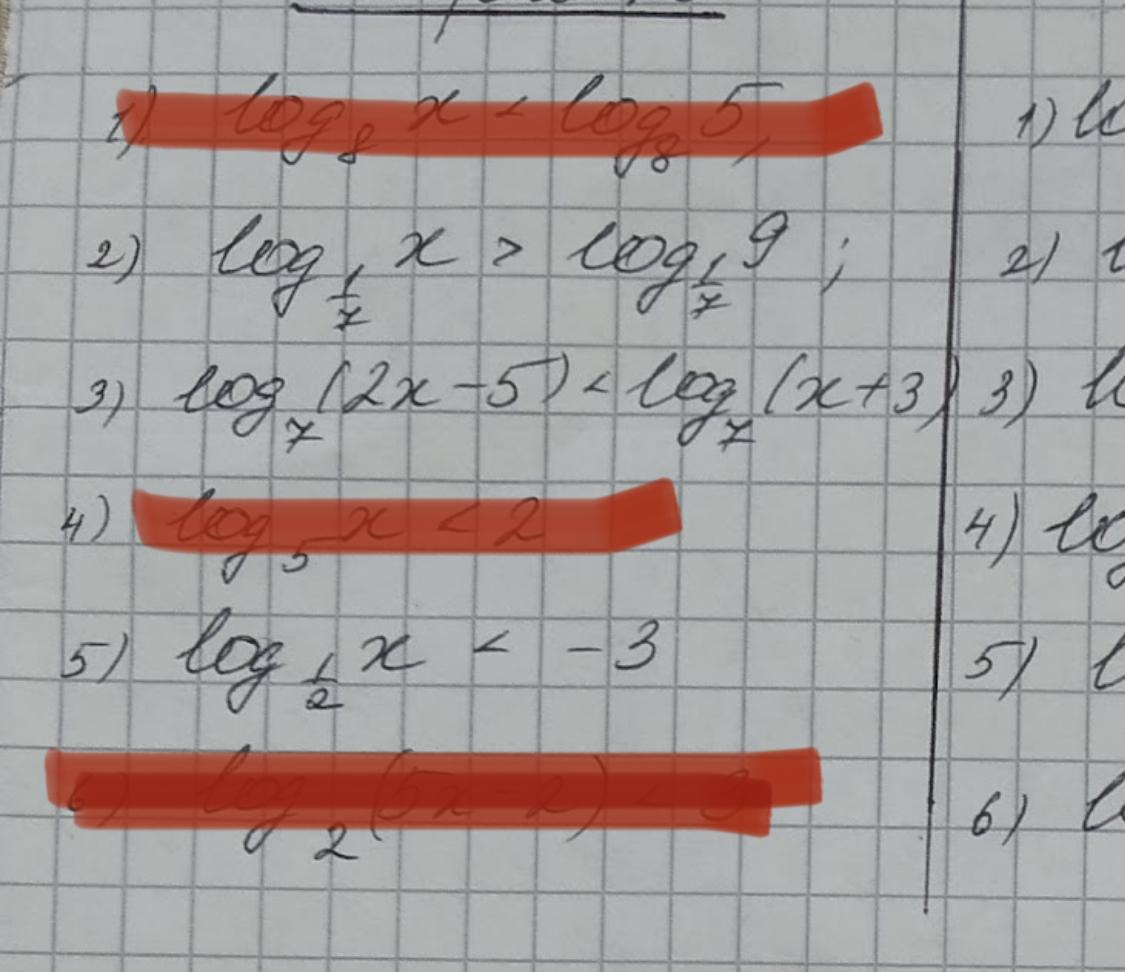 1) log₈ x < log₈ 5,
2) log_{1/7} x > log_{1/7} 9 ;
3) log₇ (2x - 5) < log₇ (x + 3)
4) log₅ x < 2
5) log_{1/2} x < -3
6) log₂ (5x - 2) < 3
1)
2)
3)
4)
5)
6)